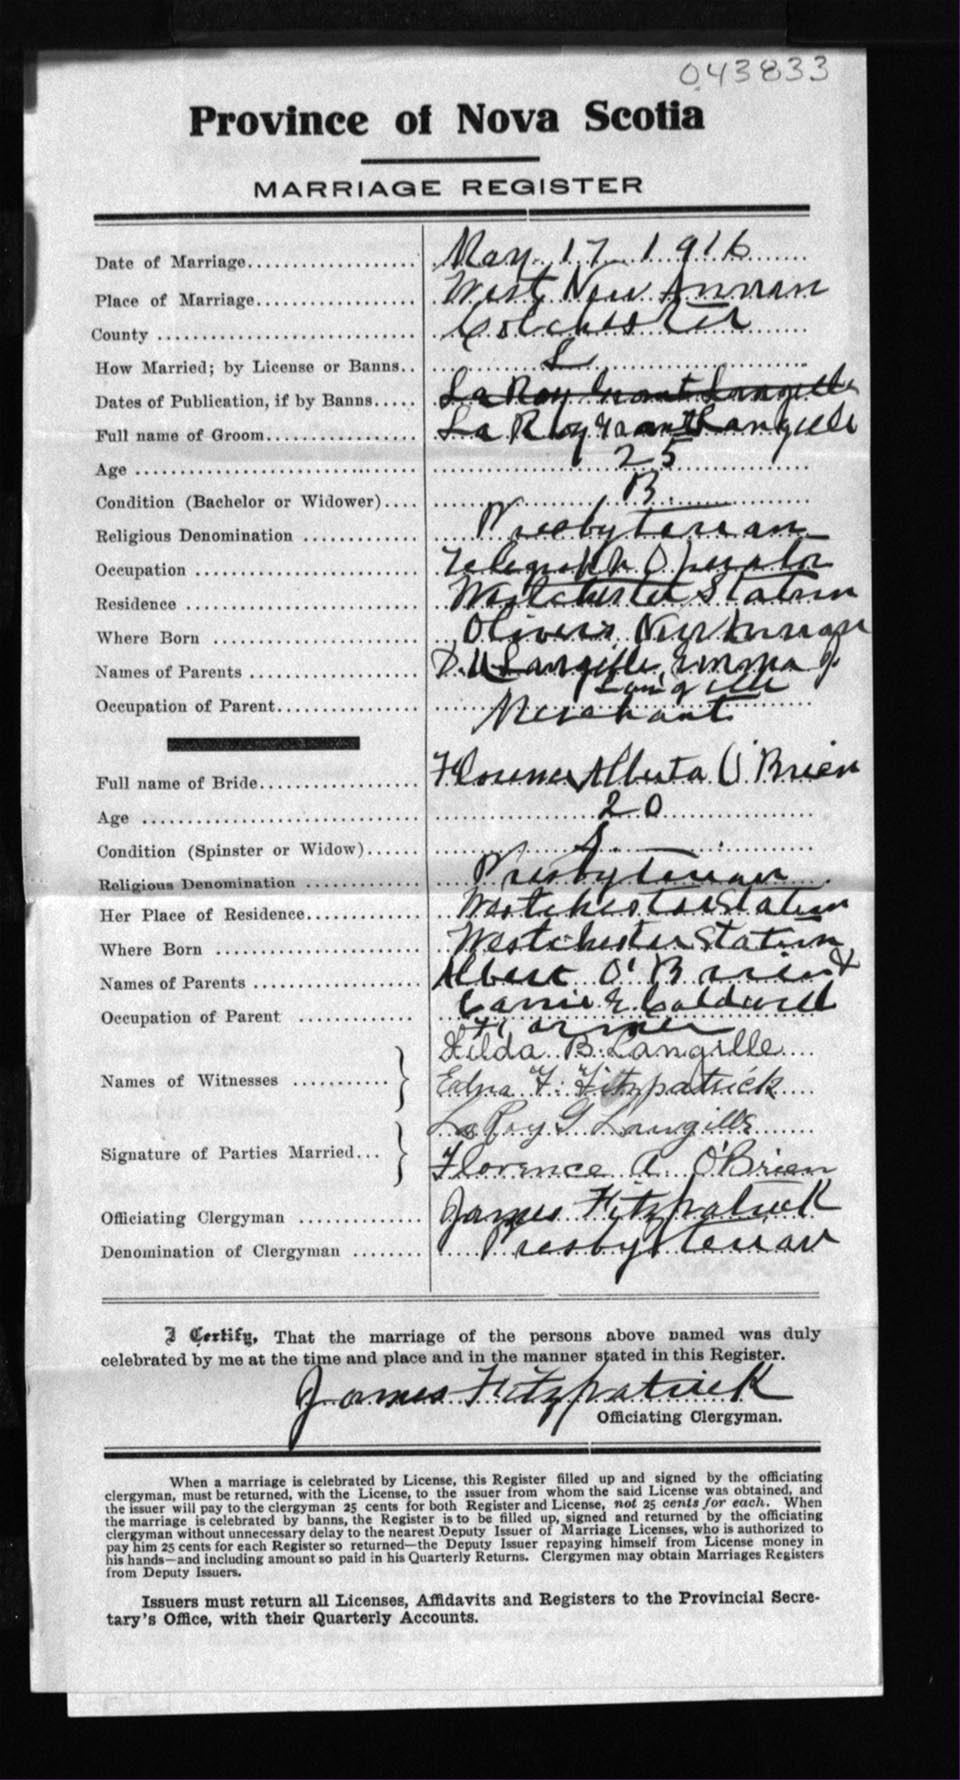 043833
Province of Nova Scotia
MARRIAGE REGISTER
Date of Marriage.................... May 17 1916
Place of Marriage.................. West New Annan
County .............................. Colchester
How Married; by License or Banns.. L
Dates of Publication, if by Banns..... La Roy Grant Langille
Full name of Groom................. La Roy Grant Langille
Age .................................. 25
Condition (Bachelor or Widower).... B
Religious Denomination ............. Presbyterian
Occupation .......................... Telegraph Operator
Residence ........................... Westchester Station
Where Born ........................ Olivers New Annan
Names of Parents ................... D. W Langille, Emma J.
Langille
Occupation of Parent................ Merchant
Full name of Bride.................. Florence Alberta O'Brien
Age .................................. 20
Condition (Spinster or Widow)...... S
Religious Denomination ............. Presbyterian
Her Place of Residence............. Westchester Station
Where Born ........................ Westchester Station
Names of Parents ................... Albert O'Brien &
Carrie E Coldwell
Occupation of Parent ............. Farmer
Names of Witnesses ........... } Hilda B. Langille
Edna F. Fitzpatrick
Signature of Parties Married... } LaRoy G Langille
Florence A. O'Brien
Officiating Clergyman .............. James Fitzpatrick
Denomination of Clergyman ........ Presbyterian
I Certify, That the marriage of the persons above named was duly
celebrated by me at the time and place and in the manner stated in this Register.
James Fitzpatrick
Officiating Clergyman.
When a marriage is celebrated by License, this Register filled up and signed by the officiating
clergyman, must be returned, with the License, to the issuer from whom the said License was obtained, and
the issuer will pay to the clergyman 25 cents for both Register and License, not 25 cents for each. When
the marriage is celebrated by banns, the Register is to be filled up, signed and returned by the officiating
clergyman without unnecessary delay to the nearest Deputy Issuer of Marriage Licenses, who is authorized to
pay him 25 cents for each Register so returned—the Deputy Issuer repaying himself from License money in
his hands—and including amount so paid in his Quarterly Returns. Clergymen may obtain Marriages Registers
from Deputy Issuers.
Issuers must return all Licenses, Affidavits and Registers to the Provincial Secre-
tary's Office, with their Quarterly Accounts.